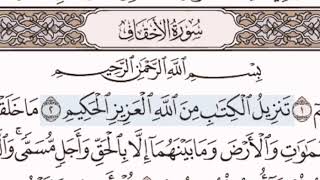 سُورَةُ الأَحْقَافِ
بِسْمِ ٱللَّهِ ٱلرَّحْمَٰنِ ٱلرَّحِيمِ
١ تَنزِيلُ ٱلْكِتَٰبِ مِنَ ٱللَّهِ ٱلْعَزِيزِ ٱلْحَكِيمِ ٢ مَا خَلَقْ
مَٰوَٰتِ وَٱلْأَرْضَ وَمَا بَيْنَهُمَآ إِلَّا بِٱلْحَقِّ وَأَجَلٍ مُّسَمًّى ۚ وَٱلَّ